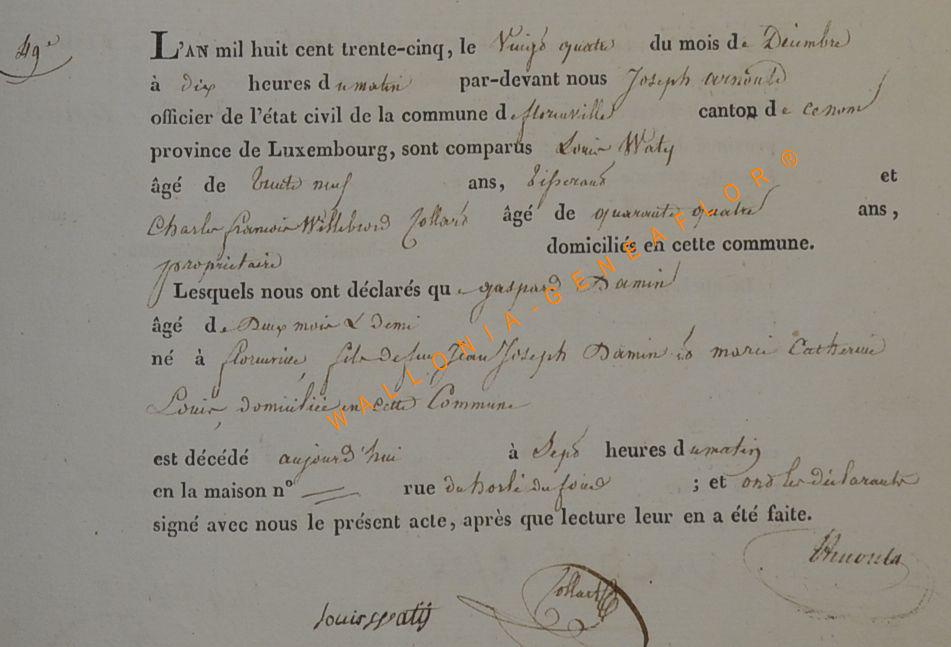 49e
L'AN mil huit cent trente-cinq, le Vingt quatre du mois de Décembre
à dix heures du matin par-devant nous Joseph arnould
officier de l'état civil de la commune de florenville canton de ce nom
province de Luxembourg, sont comparus Louis Waty
âgé de trente neuf ans, tisserand et
Charles francois Willebrord Collard âgé de quarante quatre ans,
propriétaire domiciliés en cette commune.
Lesquels nous ont déclarés que gaspard Damin
âgé de Deux mois & demi
né à florenville, fils de feu Jean Joseph Damin et marie Catherine
Louis, domiciliée en cette Commune
est décédé aujourd'hui à Sept heures du matin
en la maison no rue du ; et ont les déclarants
signé avec nous le présent acte, après que lecture leur en a été faite.
Arnould
louis watÿ Collard
WALLONIA-GENEAFLOR®